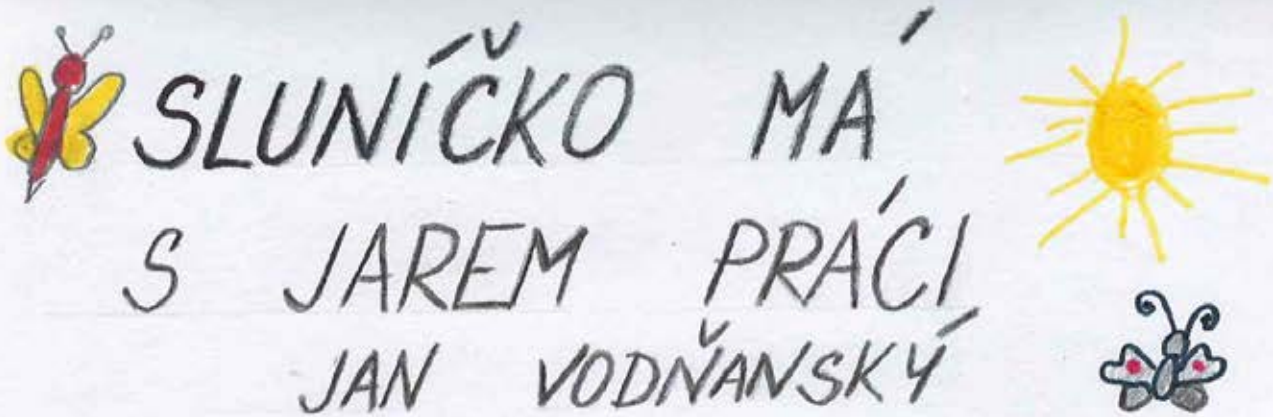 SLUNÍČKO MÁ
S JAREM PRÁCI
JAN VODŇANSKÝ